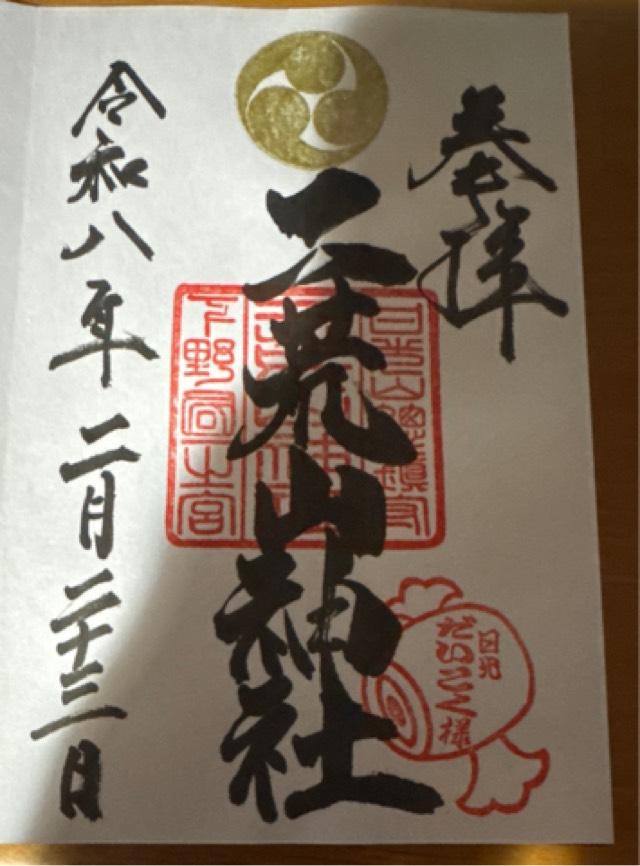 奉拝
日光山總鎮守
二荒山神社
下野国一之宮
日光
だいこく様
令和八年二月二十三日